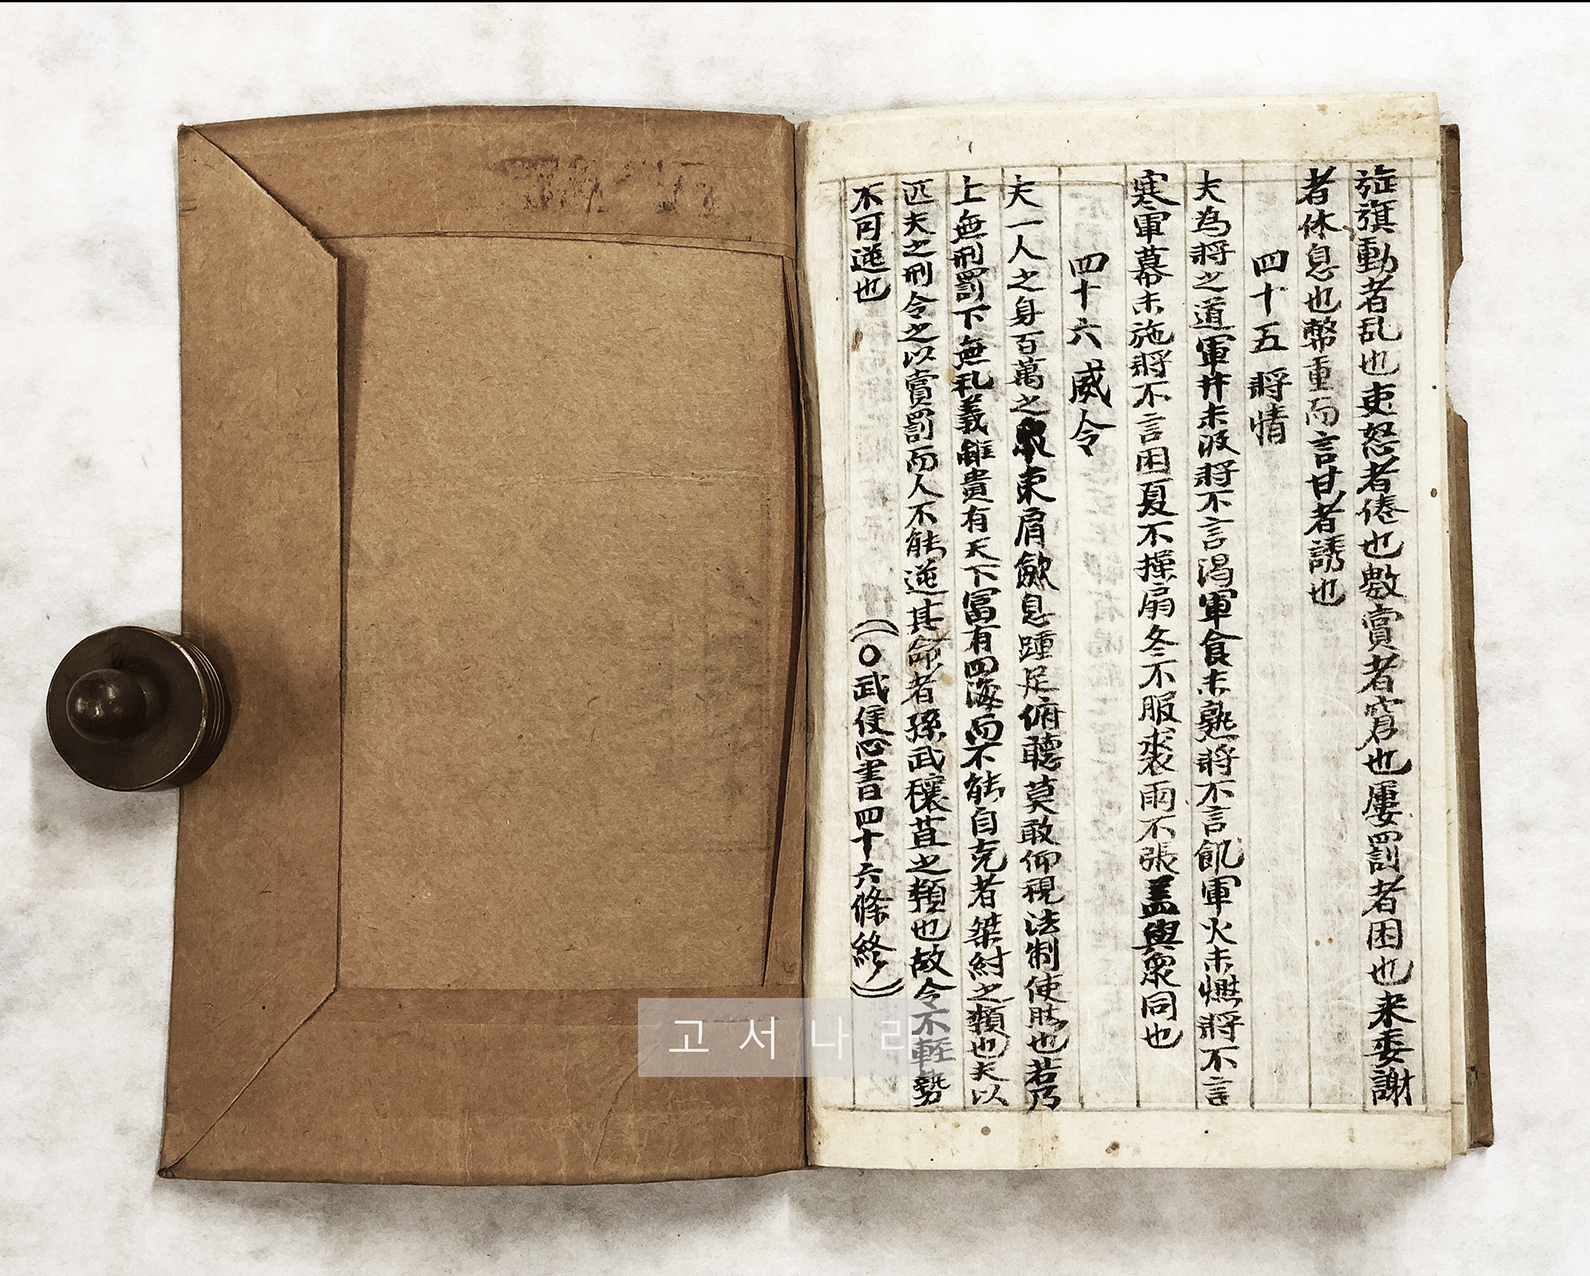 旌旗動者乱也吏怒者倦也数賞者窘也屢罰者困也来委謝
者休息也幣重而言甘者誘也
四十五 將情
夫為將之道軍井未汲將不言渴軍食未熟將不言飢軍火未燃將不言
寒軍幕未施將不言困夏不操扇冬不服裘雨不張盖與衆同也
四十六 威令
夫一人之身百萬之衆束肩歛息踵足俯聽莫敢仰視法制使然也若乃
上無刑罰下無礼義雖貴有天下富有四海而不能自克者桀紂之類也夫以
匹夫之刑令之以賞罰而人不能逆其命者孫武穰苴之類也故令不輕勢
不可逆也
(○武侯心書四十六條終)
고서나라